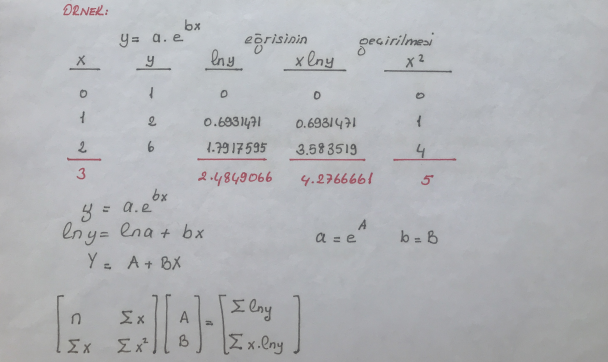 ÖRNEK:
y = a.e^bx eğrisinin geçirilmesi
x y lny x lny x²
0 1 0 0 0
1 2 0.6931471 0.6931471 1
2 6 1.7917595 3.583519 4
3 2.4849066 4.2766661 5
y = a.e^bx
lny = lna + bx a = e^A b = B
Y = A + BX
[n Σx] [A] = [Σlny]
[Σx Σx²] [B] [Σx.lny]